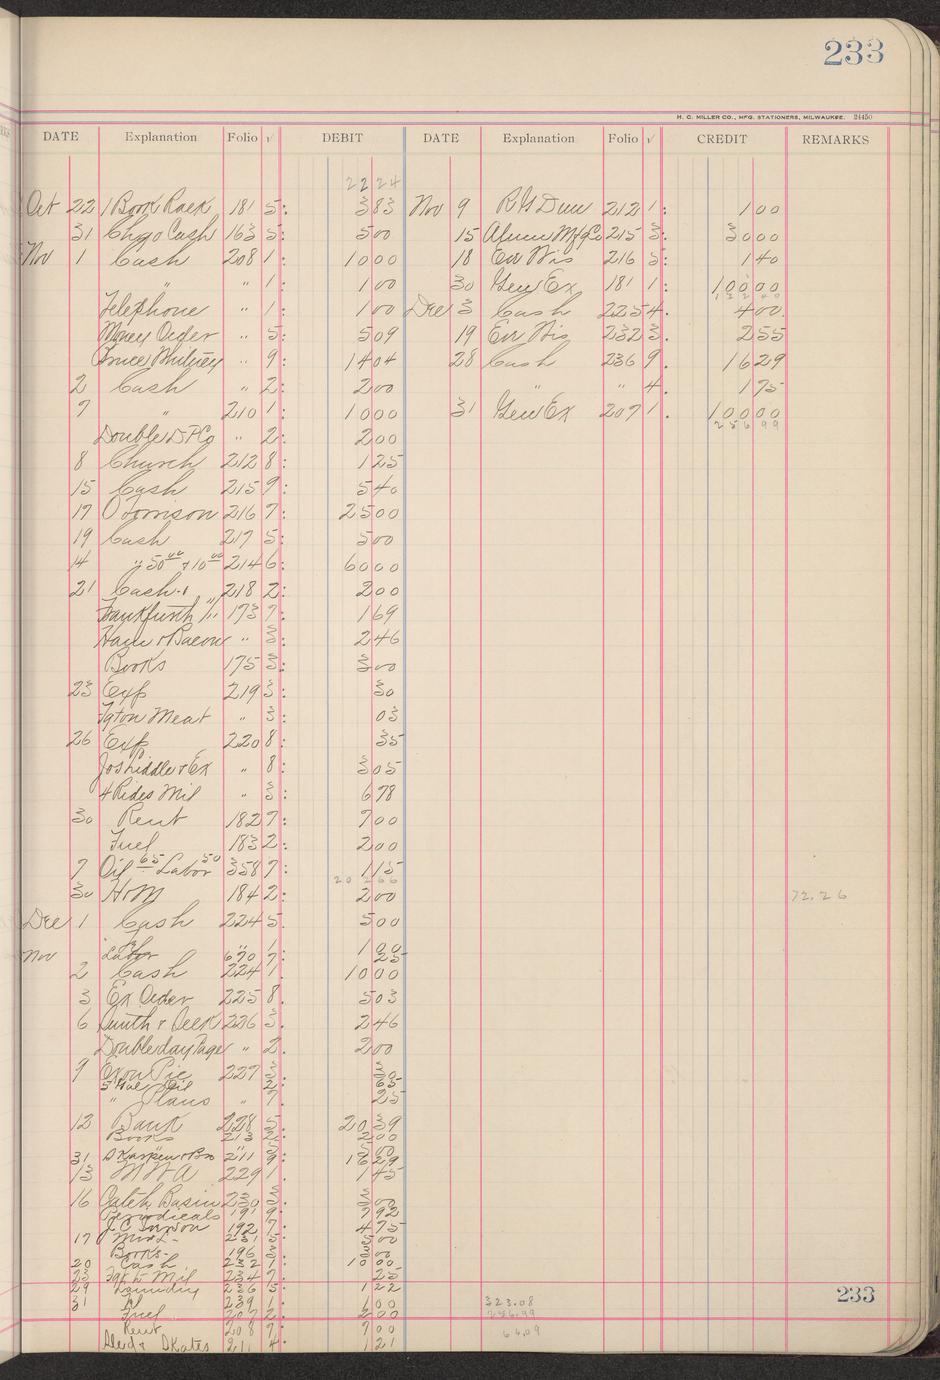 233
H. C. MILLER CO., MFG. STATIONERS, MILWAUKEE. 24450
DATE Explanation Folio √ DEBIT DATE Explanation Folio √ CREDIT REMARKS
22 24
Oct 22 1 Book Rack 181 5: 3 83 Nov 9 R G Dun 212 1: 1 00
31 Chgo Cash 163 5: 5 00 15 Alum Mfg Co 215 3: 30 00
Nov 1 Cash 208 1: 10 00 18 Ev Wis 216 5: 1 40
" " 1: 1 00 30 Gen Ex 181 1: 100 00
132 40
Telephone " 1: 1 00 Dec 3 Cash 225 4. 4 00
Money Order " 5: 5 09 19 Ev Wis 232 3. 2 55
Bruce Whitney " 9: 14 04 28 Cash 236 9. 16 29
2 Cash " 2: 2 00 " " 4. 1 75
7 " 210 1: 10 00 31 Gen Ex 207 1. 100 00
256 99
Double D P Co " 2: 2 00
8 Church 212 8: 1 25
15 Cash 215 9: 5 40
17 O Torrison 216 7: 25 00
19 Cash 217 5: 5 00
14 " 50 00 & 10 00 214 6: 60 00
21 Cash 218 2: 2 00
Frankfurth " 173 7: 1 69
Ham & Bacon " 3: 2 46
Books 175 3: 3 00
23 Exp 219 3: 30
Fgt on Meat " 3: 03
26 Exp 220 8: 35
Jos Liddle & Ex " 8: 3 05
4 Rides Mil " 3: 6 78
30 Rent 182 7: 7 00
Fuel 183 2: 2 00
7 Oil 65 Labor 50 358 7: 1 15
202 66
30 H & M 184 2: 2 00 72.26
Dec 1 Cash 224 5. 5 00
" " 1 1 00
Nov Labor 670 7: 25
2 Cash 224 1. 10 00
3 Ex Order 225 8. 5 03
6 Smith & 226 3. 2 46
Doubleday Page " 2. 2 00
9 227 3.
5 Gal Oil 2: 65
" Plans " 7. 25
12 Bank 228 5. 20 39
Books 213 2: 2 00
31 211 9: 16 29
13 M W A 229 1. 1 45
16 Catch Basin 230 3. 3 00
Periodicals 191 9: 7 92
192 7: 4 75
17 231 5 5 00
Books 196 3: 3 00
20 Cash 232 1: 10 00
23 Fgt to Mil 234 7. 25
29 Laundry 236 5: 1 22 233
31 239 1. 1 00 323.08
Fuel 207 2: 2 00 256.99
Rent 208 7: 7 00 66.09
Skates 211 4: 1 21